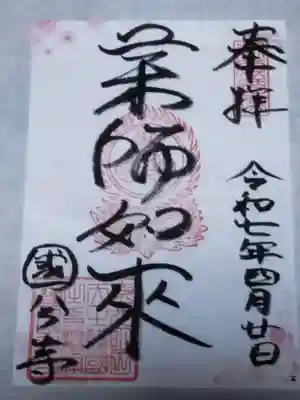 奉拝
令和七年四月廿日
薬師如來
國分寺